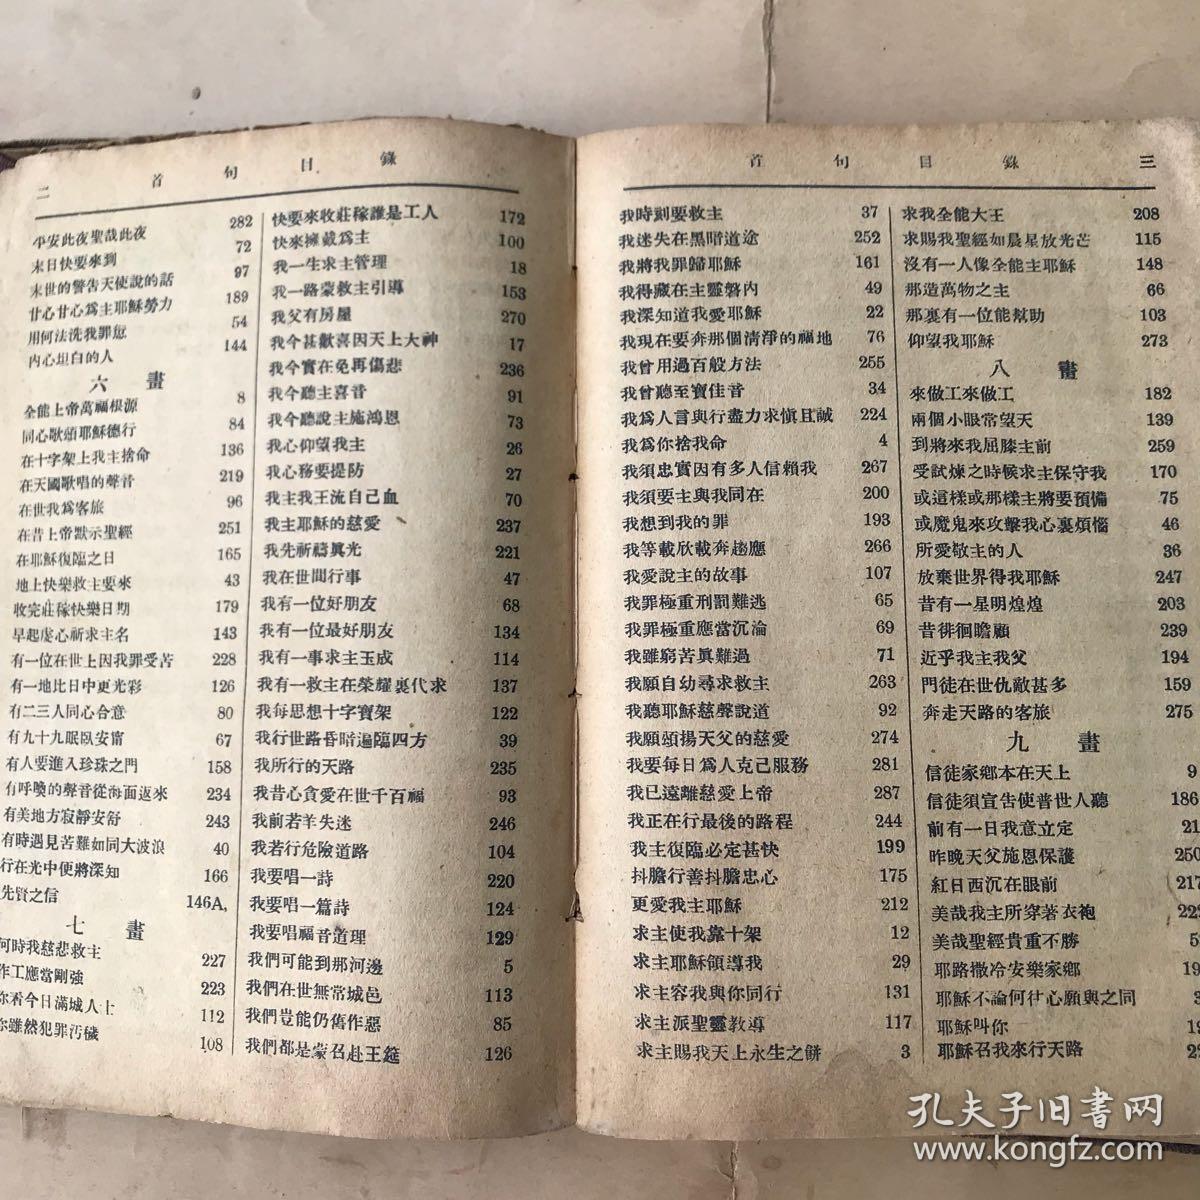 二 首句目錄
平安此夜聖哉此夜 282
末日快要來到 72
末世的警告天使說的話 97
甘心甘心爲主耶穌勞力 189
用何法洗我罪愆 54
內心坦白的人 144
六畫
全能上帝萬福根源 8
同心歌頌耶穌德行 84
在十字架上我主捨命 136
在天國歌唱的聲音 219
在世我爲客旅 96
在昔上帝默示聖經 251
在耶穌復臨之日 165
地上快樂救主要來 43
收完莊稼快樂日期 179
早起虔心祈求主名 143
有一位在世上因我罪受苦 228
有一地比日中更光彩 126
有二三人同心合意 80
有九十九眠臥安甯 67
有人要進入珍珠之門 158
有呼喚的聲音從海面返來 234
有美地方寂靜安舒 243
有時遇見苦難如同大波浪 40
行在光中便將深知 166
先賢之信 146A,
七畫
何時我慈悲救主 227
作工應當剛強 223
你看今日滿城人士 112
你雖然犯罪汚穢 108
快要來收莊稼誰是工人 172
快來擁戴爲主 100
我一生求主管理 18
我一路蒙救主引導 153
我父有房屋 270
我今甚歡喜因天上大神 17
我今實在免再傷悲 236
我今聽主喜音 91
我今聽說主施鴻恩 73
我心仰望我主 26
我心務要提防 27
我主我王流自己血 70
我主耶穌的慈愛 237
我先祈禱眞光 221
我在世間行事 47
我有一位好朋友 68
我有一位最好朋友 134
我有一事求主玉成 114
我有一救主在榮耀裏代求 137
我每思想十字寶架 122
我行世路昏暗遍臨四方 39
我所行的天路 235
我昔心貪愛在世千百福 93
我前若羊失迷 246
我若行危險道路 104
我要唱一詩 220
我要唱一篇詩 124
我要唱福音道理 129
我們可能到那河邊 5
我們在世無常城邑 113
我們豈能仍舊作惡 85
我們都是蒙召赴王筵 126
首句目錄 三
我時刻要救主 37
我迷失在黑暗道途 252
我將我罪歸耶穌 161
我得藏在主靈磐內 49
我深知道我愛耶穌 22
我現在要奔那個清淨的福地 76
我曾用過百般方法 255
我曾聽至寶佳音 34
我爲人言與行盡力求愼且誠 224
我爲你捨我命 4
我須忠實因有多人信賴我 267
我須要主與我同在 200
我想到我的罪 193
我等載欣載奔趨應 266
我愛說主的故事 107
我罪極重刑罰難逃 65
我罪極重應當沉淪 69
我雖窮苦眞難過 71
我願自幼尋求救主 263
我聽耶穌慈聲說道 92
我願頌揚天父的慈愛 274
我要每日爲人克己服務 281
我已遠離慈愛上帝 287
我正在行最後的路程 244
我主復臨必定甚快 199
抖膽行善抖膽忠心 175
更愛我主耶穌 212
求主使我靠十架 12
求主耶穌領導我 29
求主容我與你同行 131
求主派聖靈教導 117
求主賜我天上永生之餅 3
求我全能大王 208
求賜我聖經如晨星放光芒 115
沒有一人像全能主耶穌 148
那造萬物之主 66
那裏有一位能幫助 103
仰望我耶穌 273
八畫
來做工來做工 182
兩個小眼常望天 139
到將來我屈膝主前 259
受試煉之時候求主保守我 170
或這樣或那樣主將要預備 75
或魔鬼來攻擊我心裏煩惱 46
所愛敬主的人 36
放棄世界得我耶穌 247
昔有一星明煌煌 203
昔徘徊瞻顧 239
近乎我主我父 194
門徒在世仇敵甚多 159
奔走天路的客旅 275
九畫
信徒家鄉本在天上 9
信徒須宣告使普世人聽 186
前有一日我意立定 21
昨晚天父施恩保護 250
紅日西沉在眼前 217
美哉我主所穿著衣袍 222
美哉聖經貴重不勝 5
耶路撒冷安樂家鄉 19
耶穌不論何往心願與之同 3
耶穌叫你 19
耶穌召我來行天路 2
孔夫子旧書网
www.kongfz.com